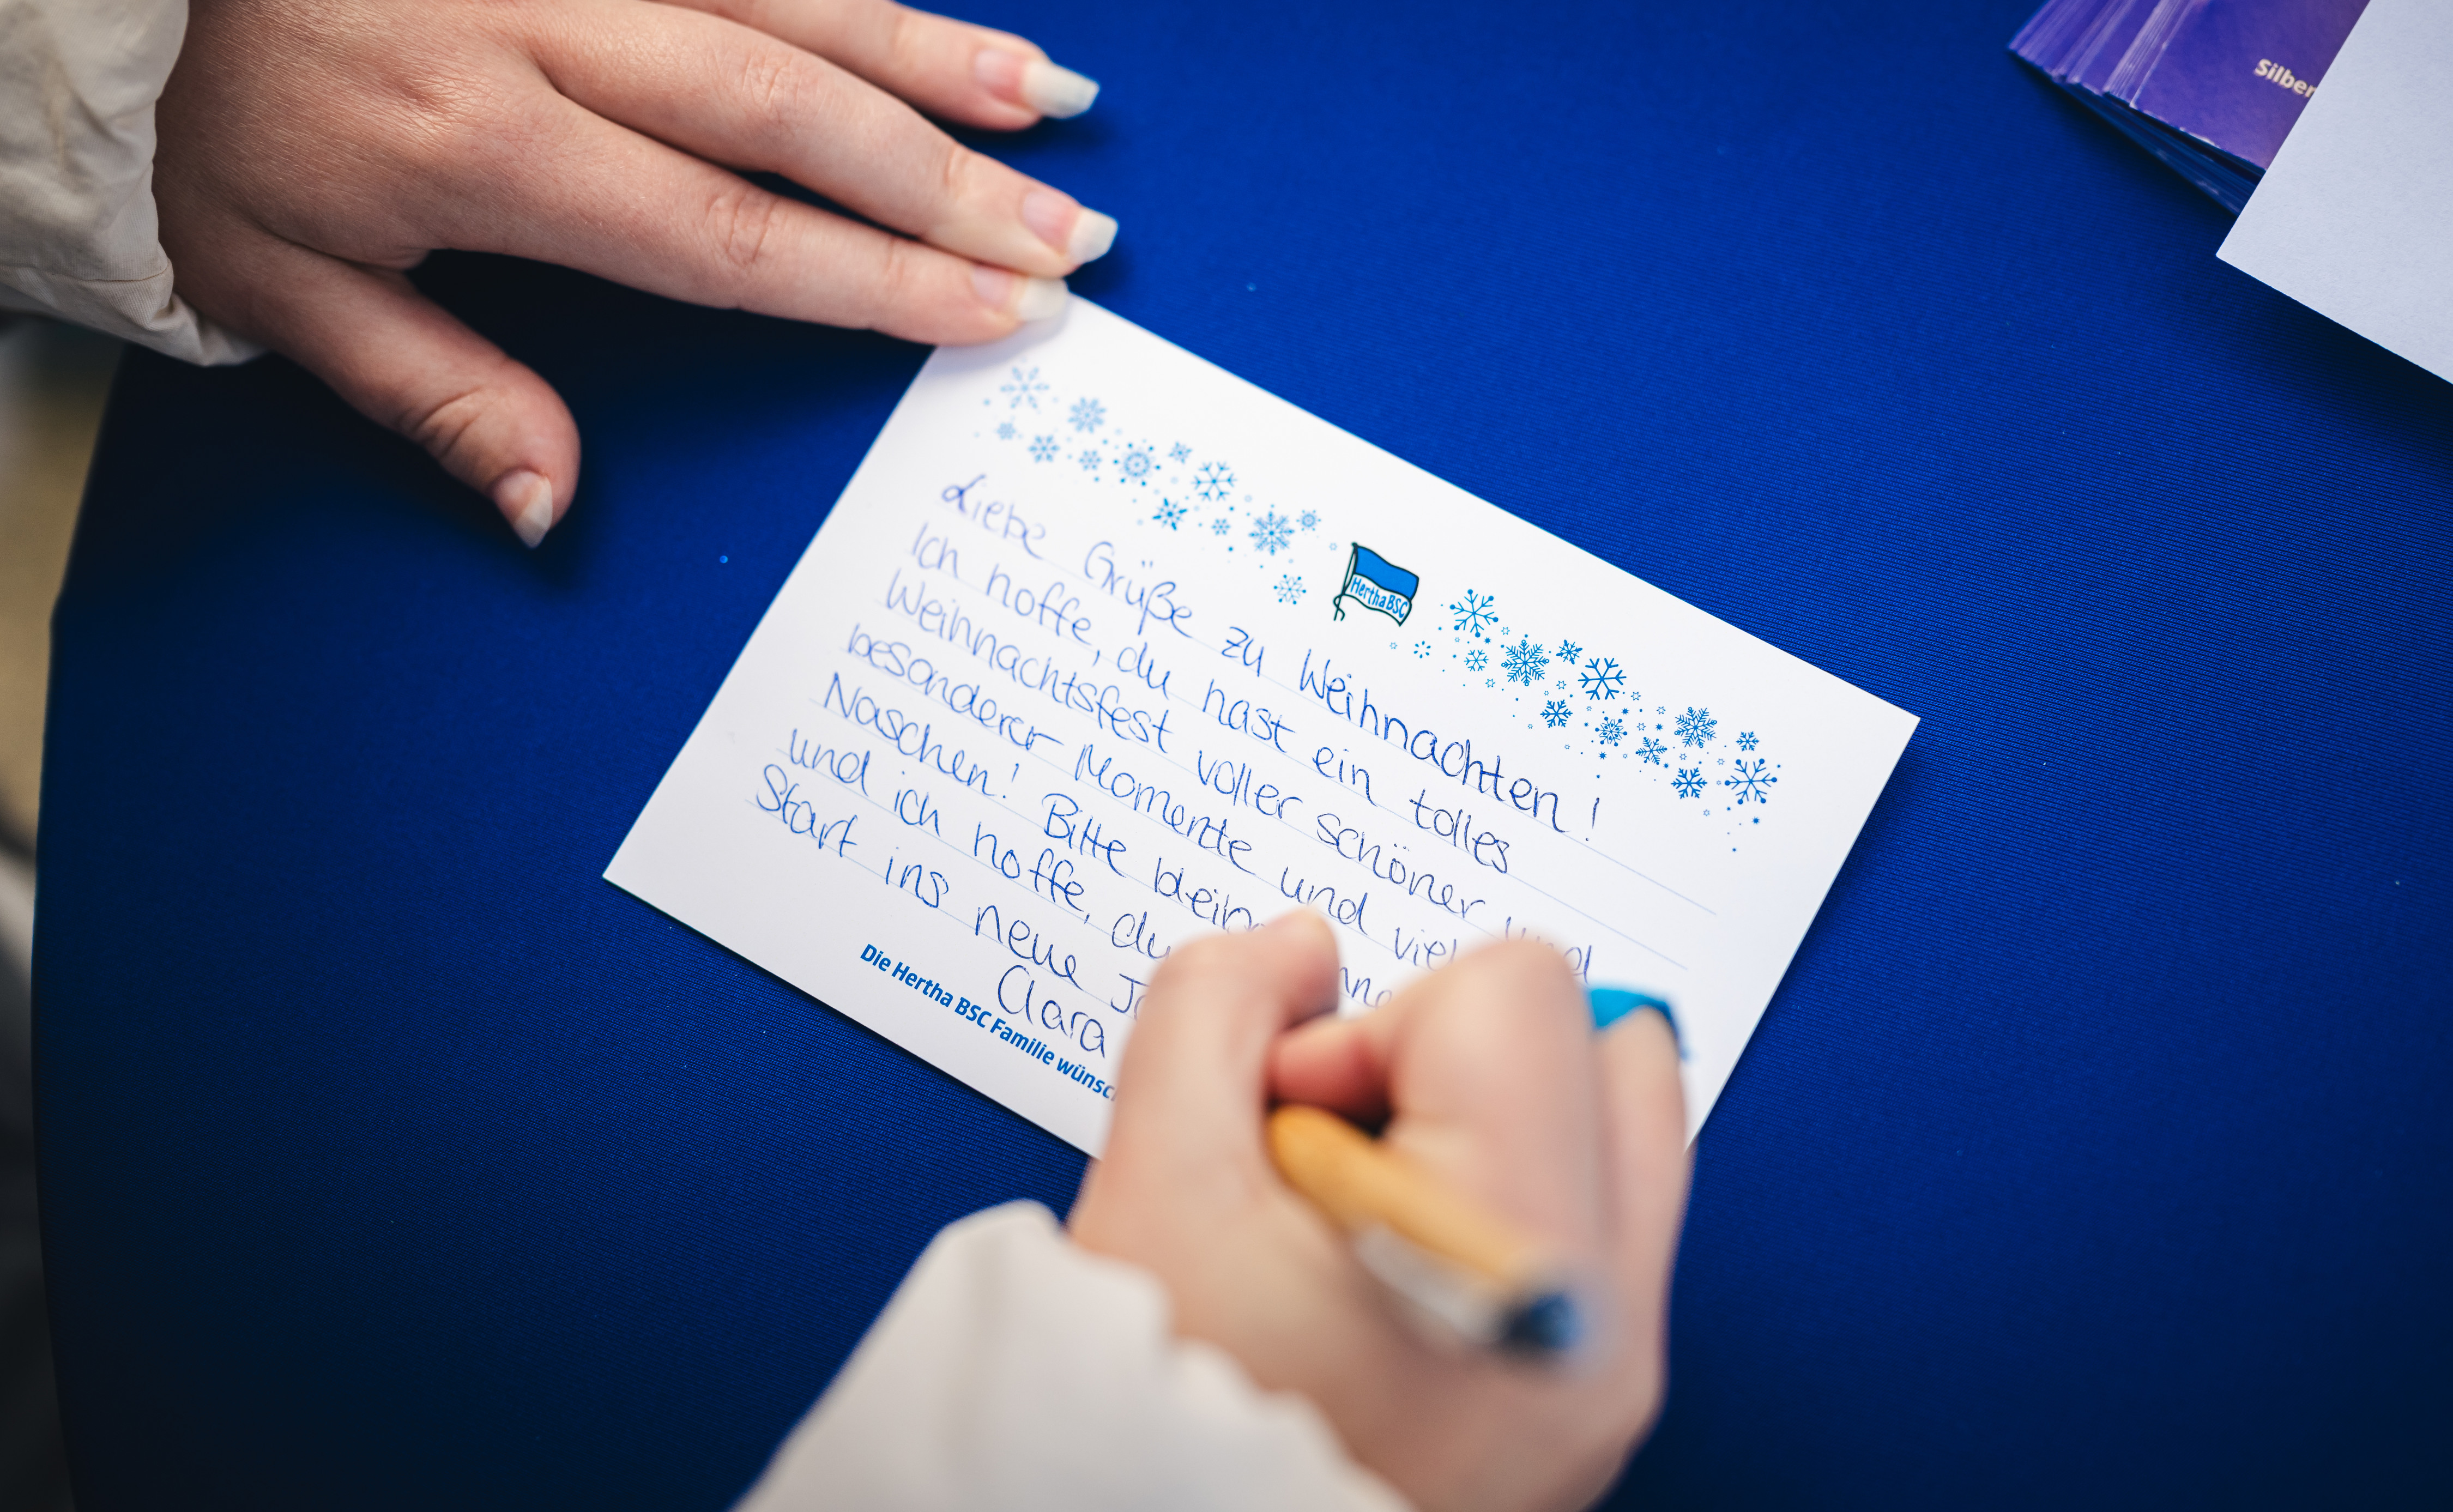 Silber
Hertha BSC
Liebe Grüße zu Weihnachten!
Ich hoffe, du hast ein tolles
Weihnachtsfest voller schöner und
besonderer Momente und viel
Naschen! Bitte
und ich hoffe, du
Start ins neue
Clara
Die Hertha BSC Familie